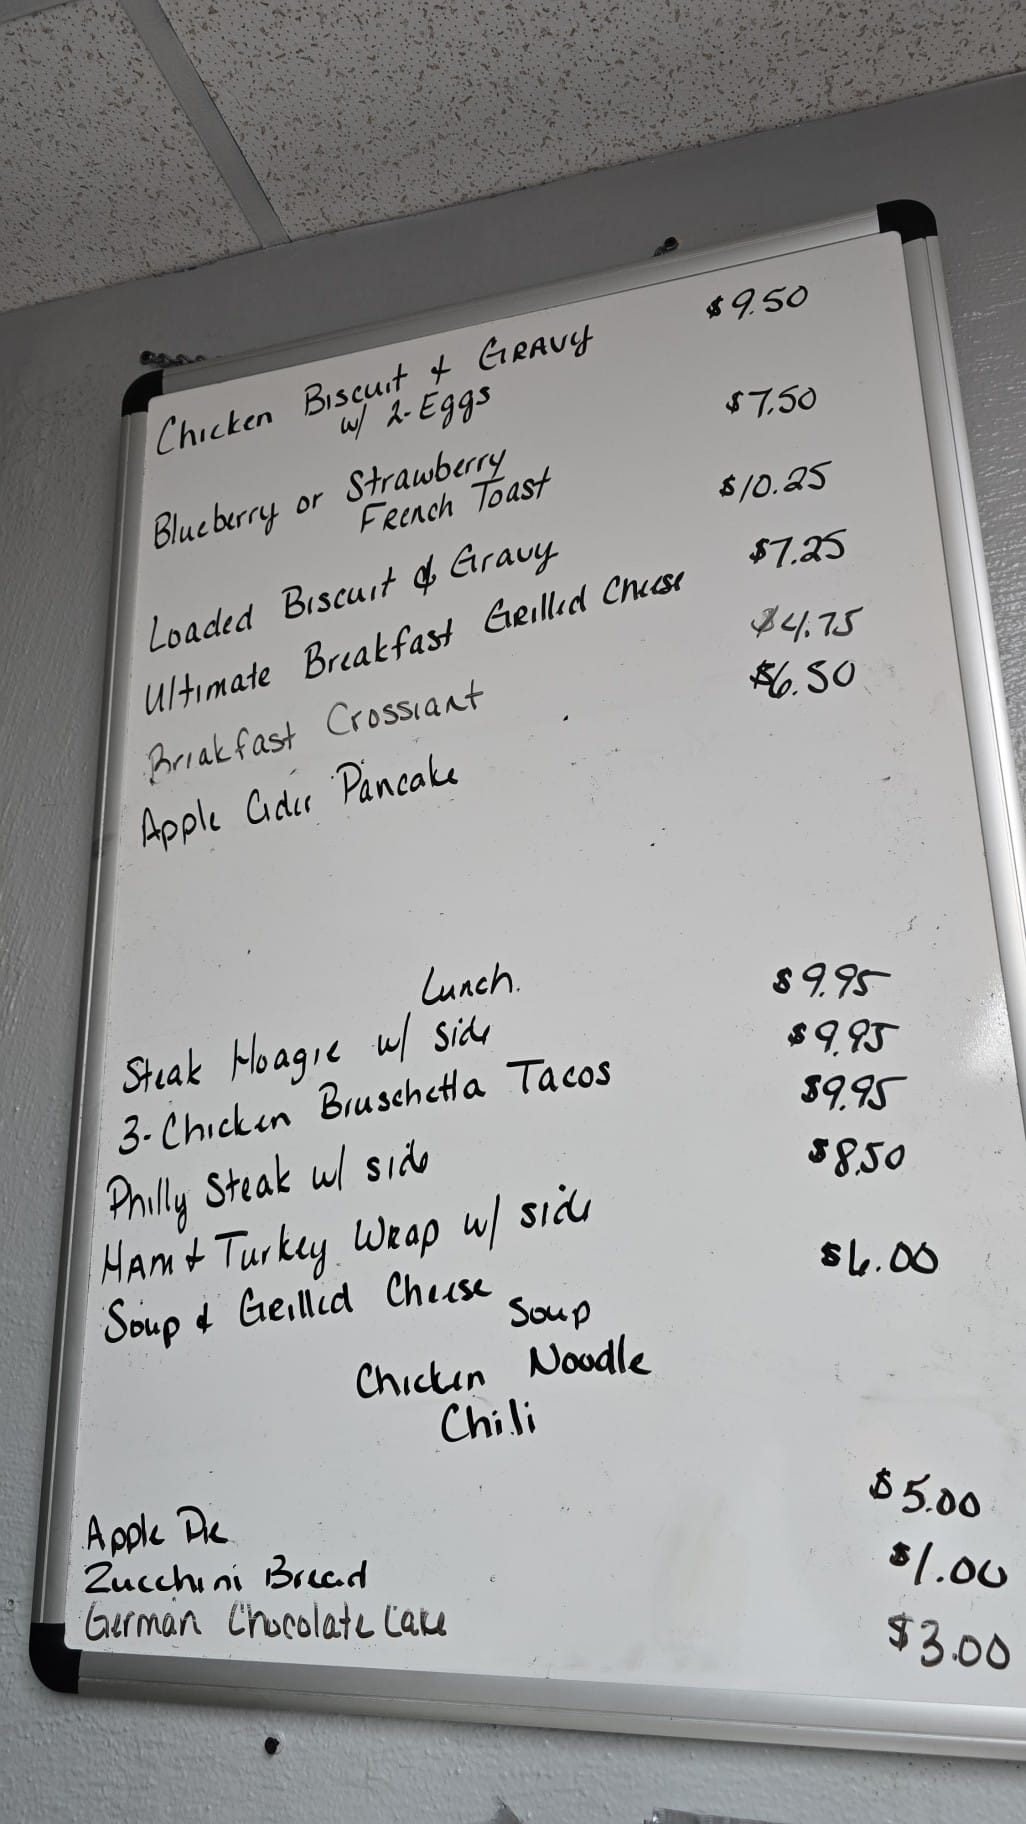 Chicken Biscuit & Gravy $9.50
w/ 2-Eggs
Blueberry or Strawberry $7.50
French Toast
Loaded Biscuit & Gravy $10.25
Ultimate Breakfast Grilled Cheese $7.25
Breakfast Crossiant $4.75
Apple Cider Pancake $6.50
Lunch.
Steak Hoagie w/ side $9.95
3-Chicken Bruschetta Tacos $9.95
Philly Steak w/ side $9.95
Ham & Turkey Wrap w/ side $8.50
Soup & Grilled Cheese $6.00
Soup
Chicken Noodle
Chili
Apple Pie $5.00
Zucchini Bread $1.00
German Chocolate Cake $3.00